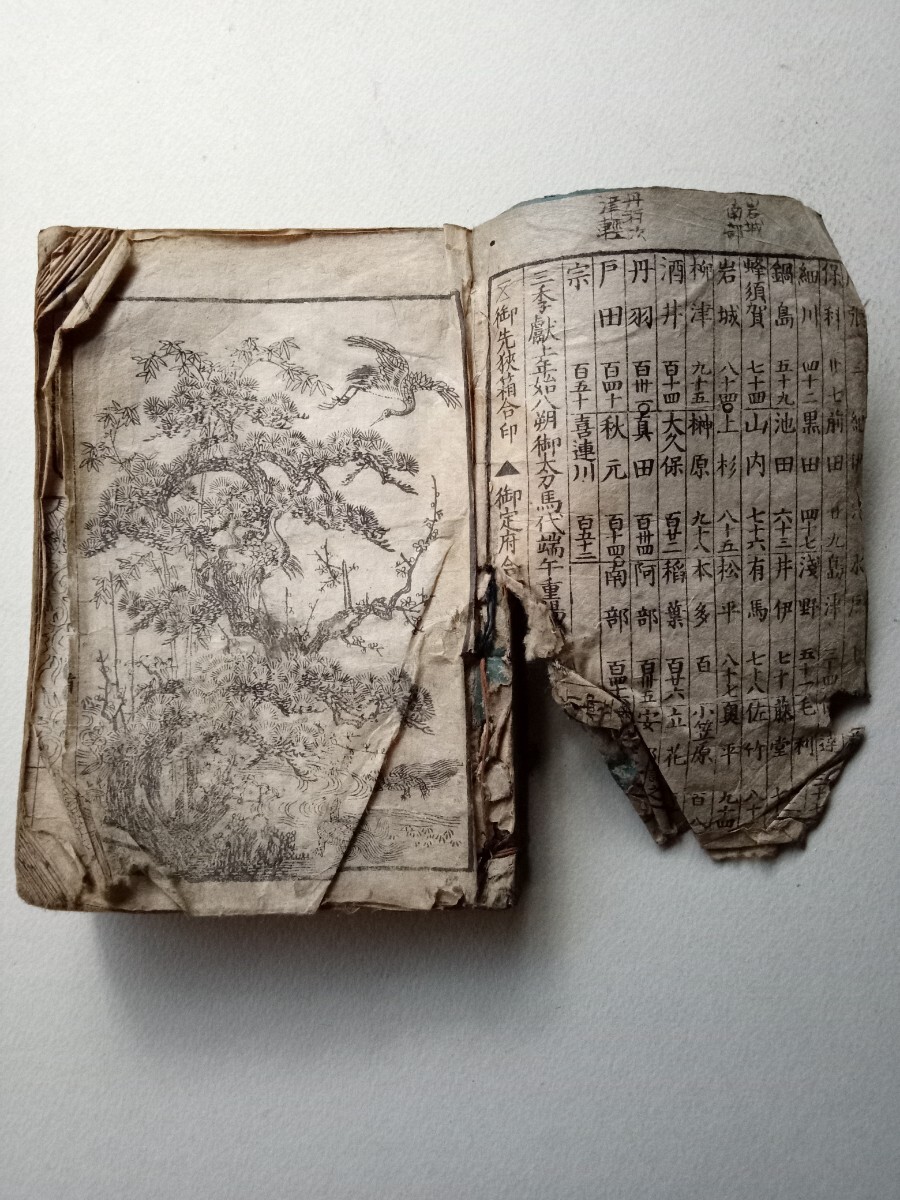 岩城
南部
丹羽
津輕
保科 廿七 前田 廿九 島津 三十四
細川 四十二 黒田 四十七 淺野 五十一 毛利
鍋島 五十九 池田 六十三 井伊 七十 藤堂
蜂須賀 七十四 山内 七十六 有馬 七十八 佐竹 八十
岩城 八十四 上杉 八十五 松平 八十七 奥平 九十四
柳津 九十五 榊原 九十八 本多 百 小笠原 百八
酒井 百十四 大久保 百廿二 稲葉 百廿六 立花
丹羽 百卅 真田 百卅四 阿部 百卅五 安
戸田 百四十 秋元 百十四 南部
宗 百五十 喜連川 百五十三
三季獻上年始八朔御太刀馬代端午重陽
御先狹箱合印 ▲御定府合